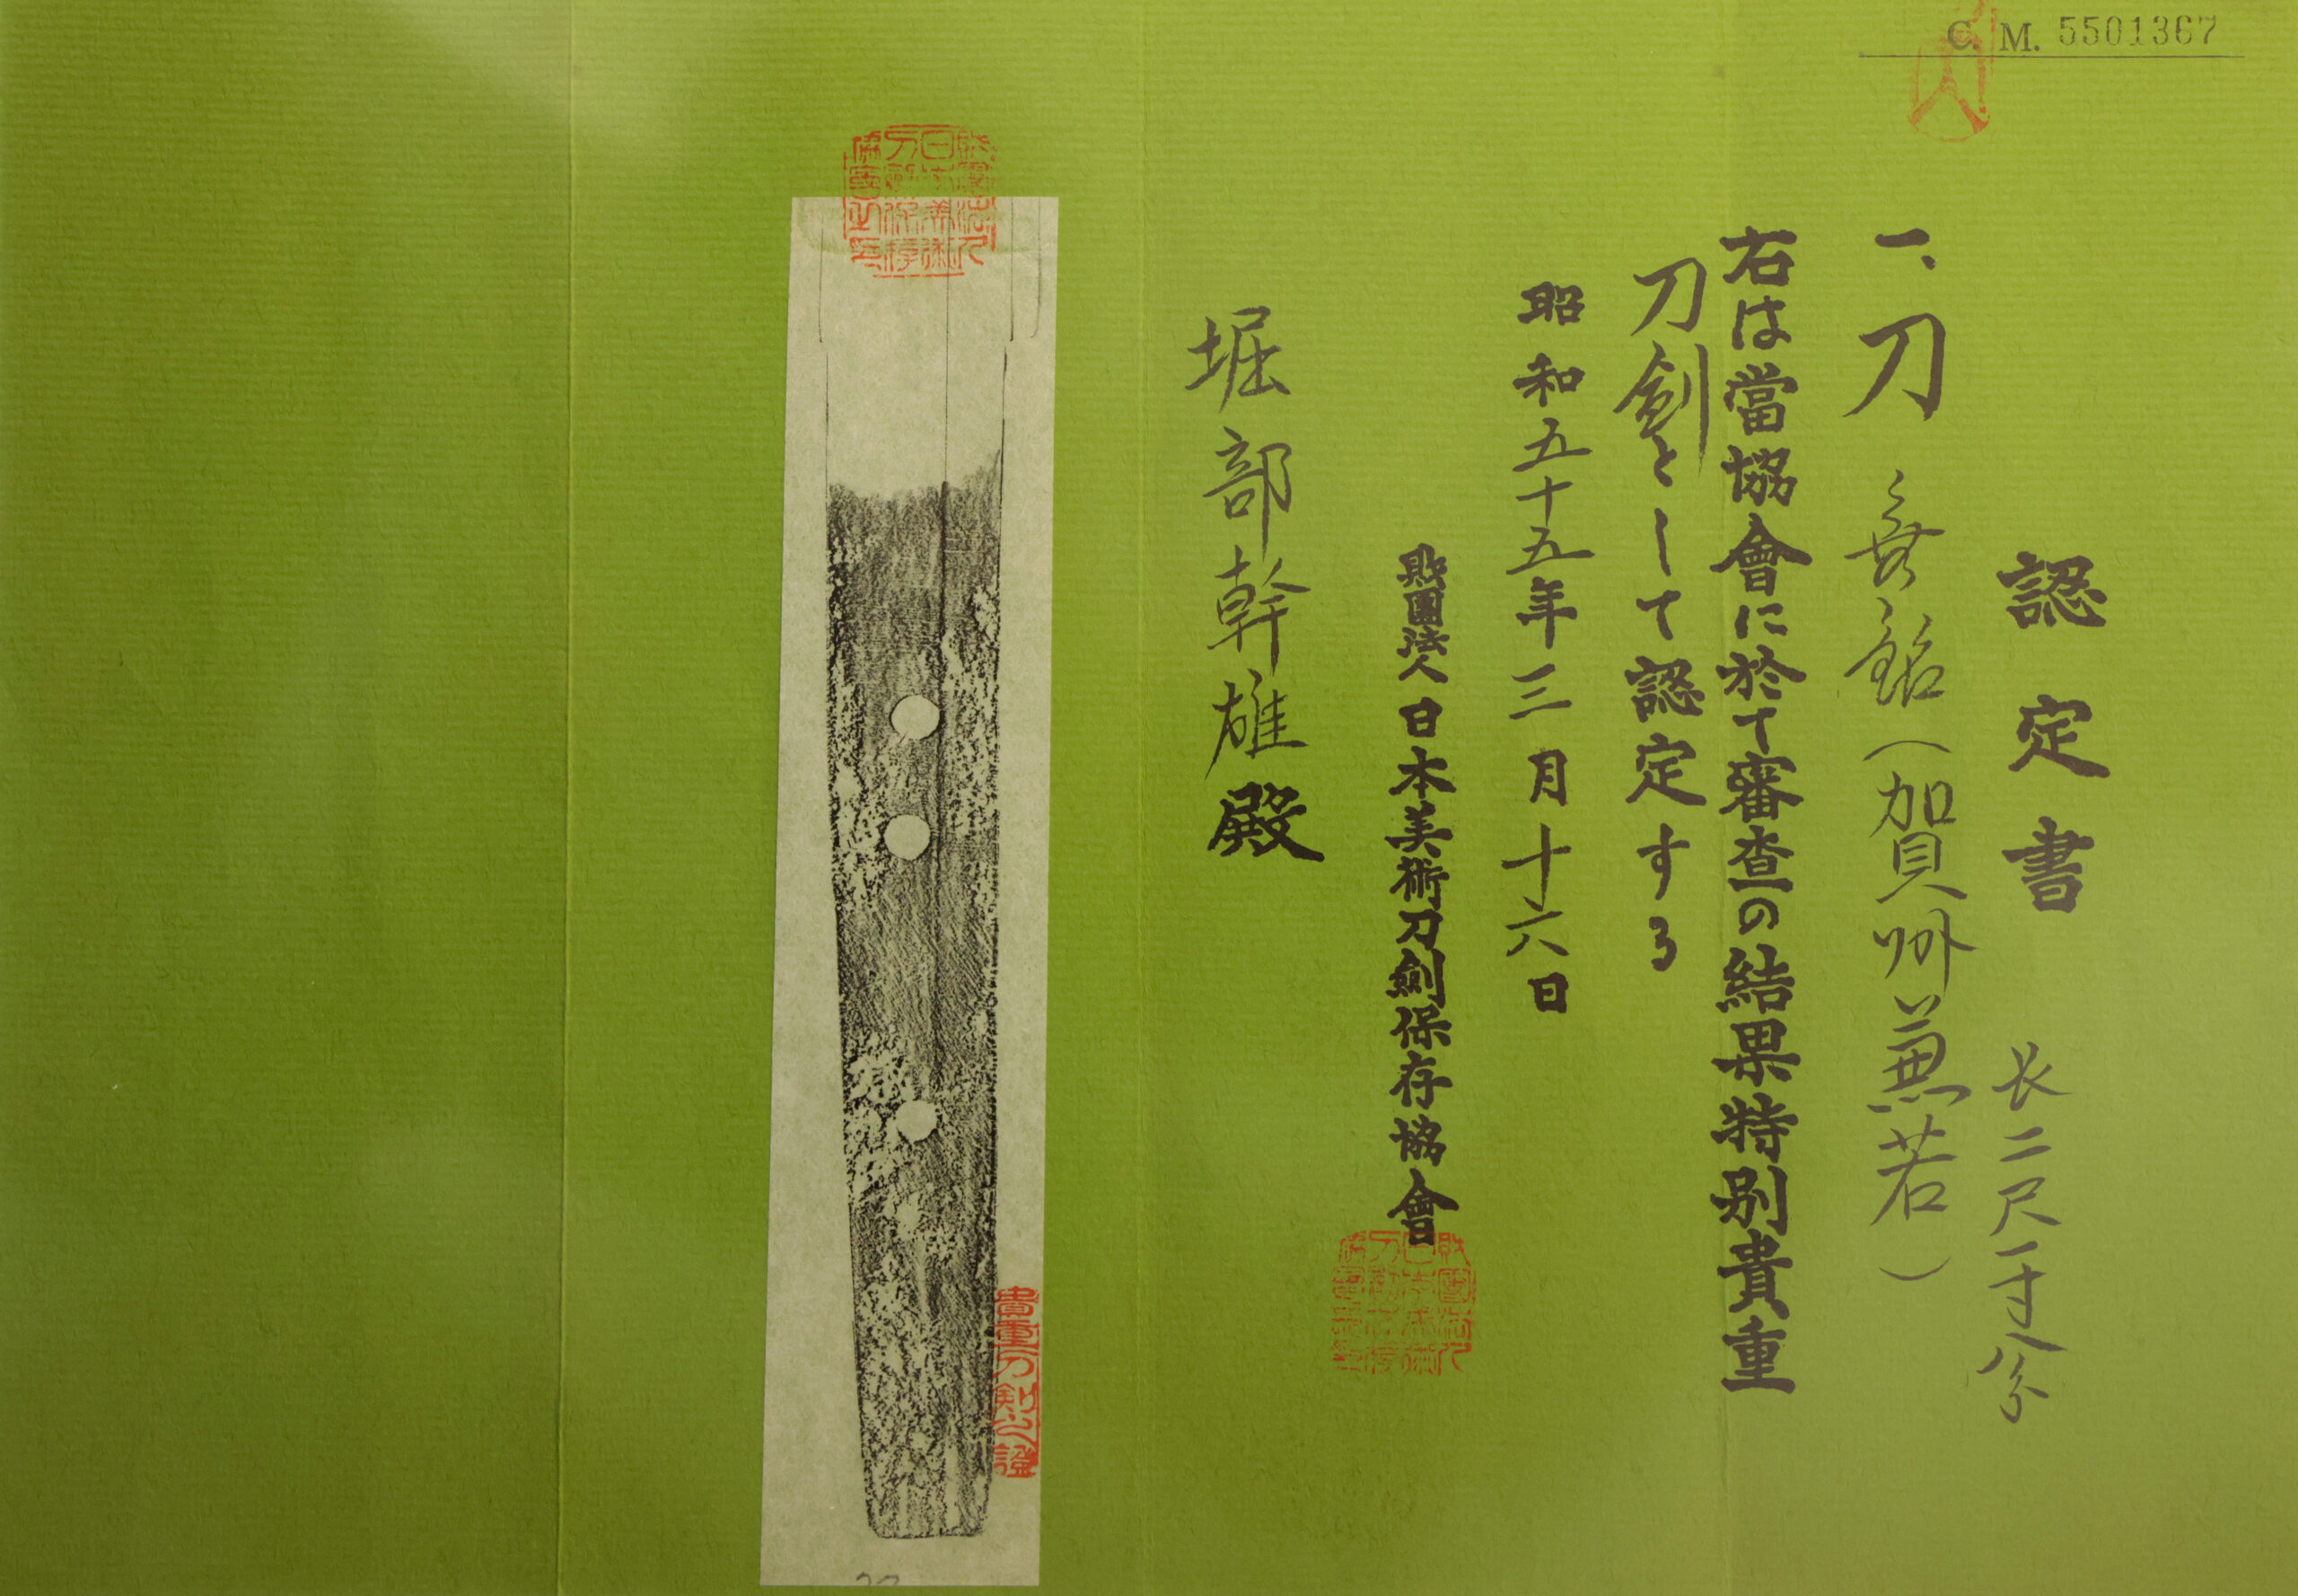 C. M. 5501367
認定書
長二尺一寸八分
一、刀 無銘(加賀州兼若)
右は當協會に於て審査の結果特別貴重
刀劍として認定する
昭和五十五年三月十六日
財團法人日本美術刀劍保存協會
堀部幹雄殿
財團法人日本美術刀劍保存協會之印
貴重刀剣之證